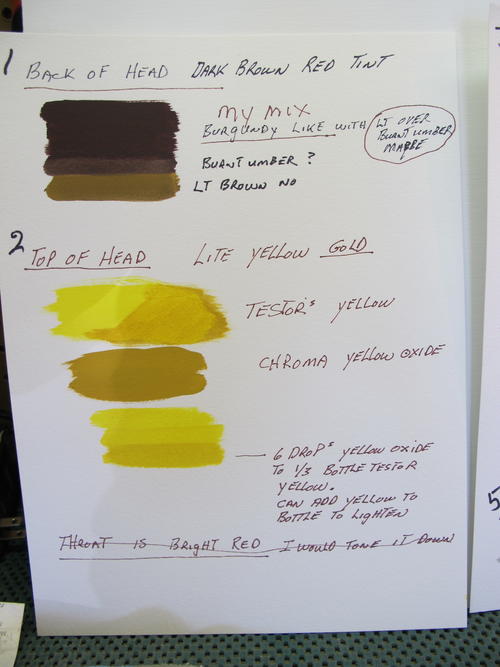 1 BACK OF HEAD DARK BROWN RED TINT
MY MIX
BURGUNDY LIKE WITH
LT OVER
BURNT UMBER
MAYBE
BURNT UMBER ?
LT BROWN NO
2 TOP OF HEAD LITE YELLOW GOLD
TESTOR'S YELLOW
CHROMA YELLOW OXIDE
6 DROPS YELLOW OXIDE
TO 1/3 BOTTLE TESTOR
YELLOW.
CAN ADD YELLOW TO
BOTTLE TO LIGHTEN
THROAT IS BRIGHT RED I WOULD TONE IT DOWN
5